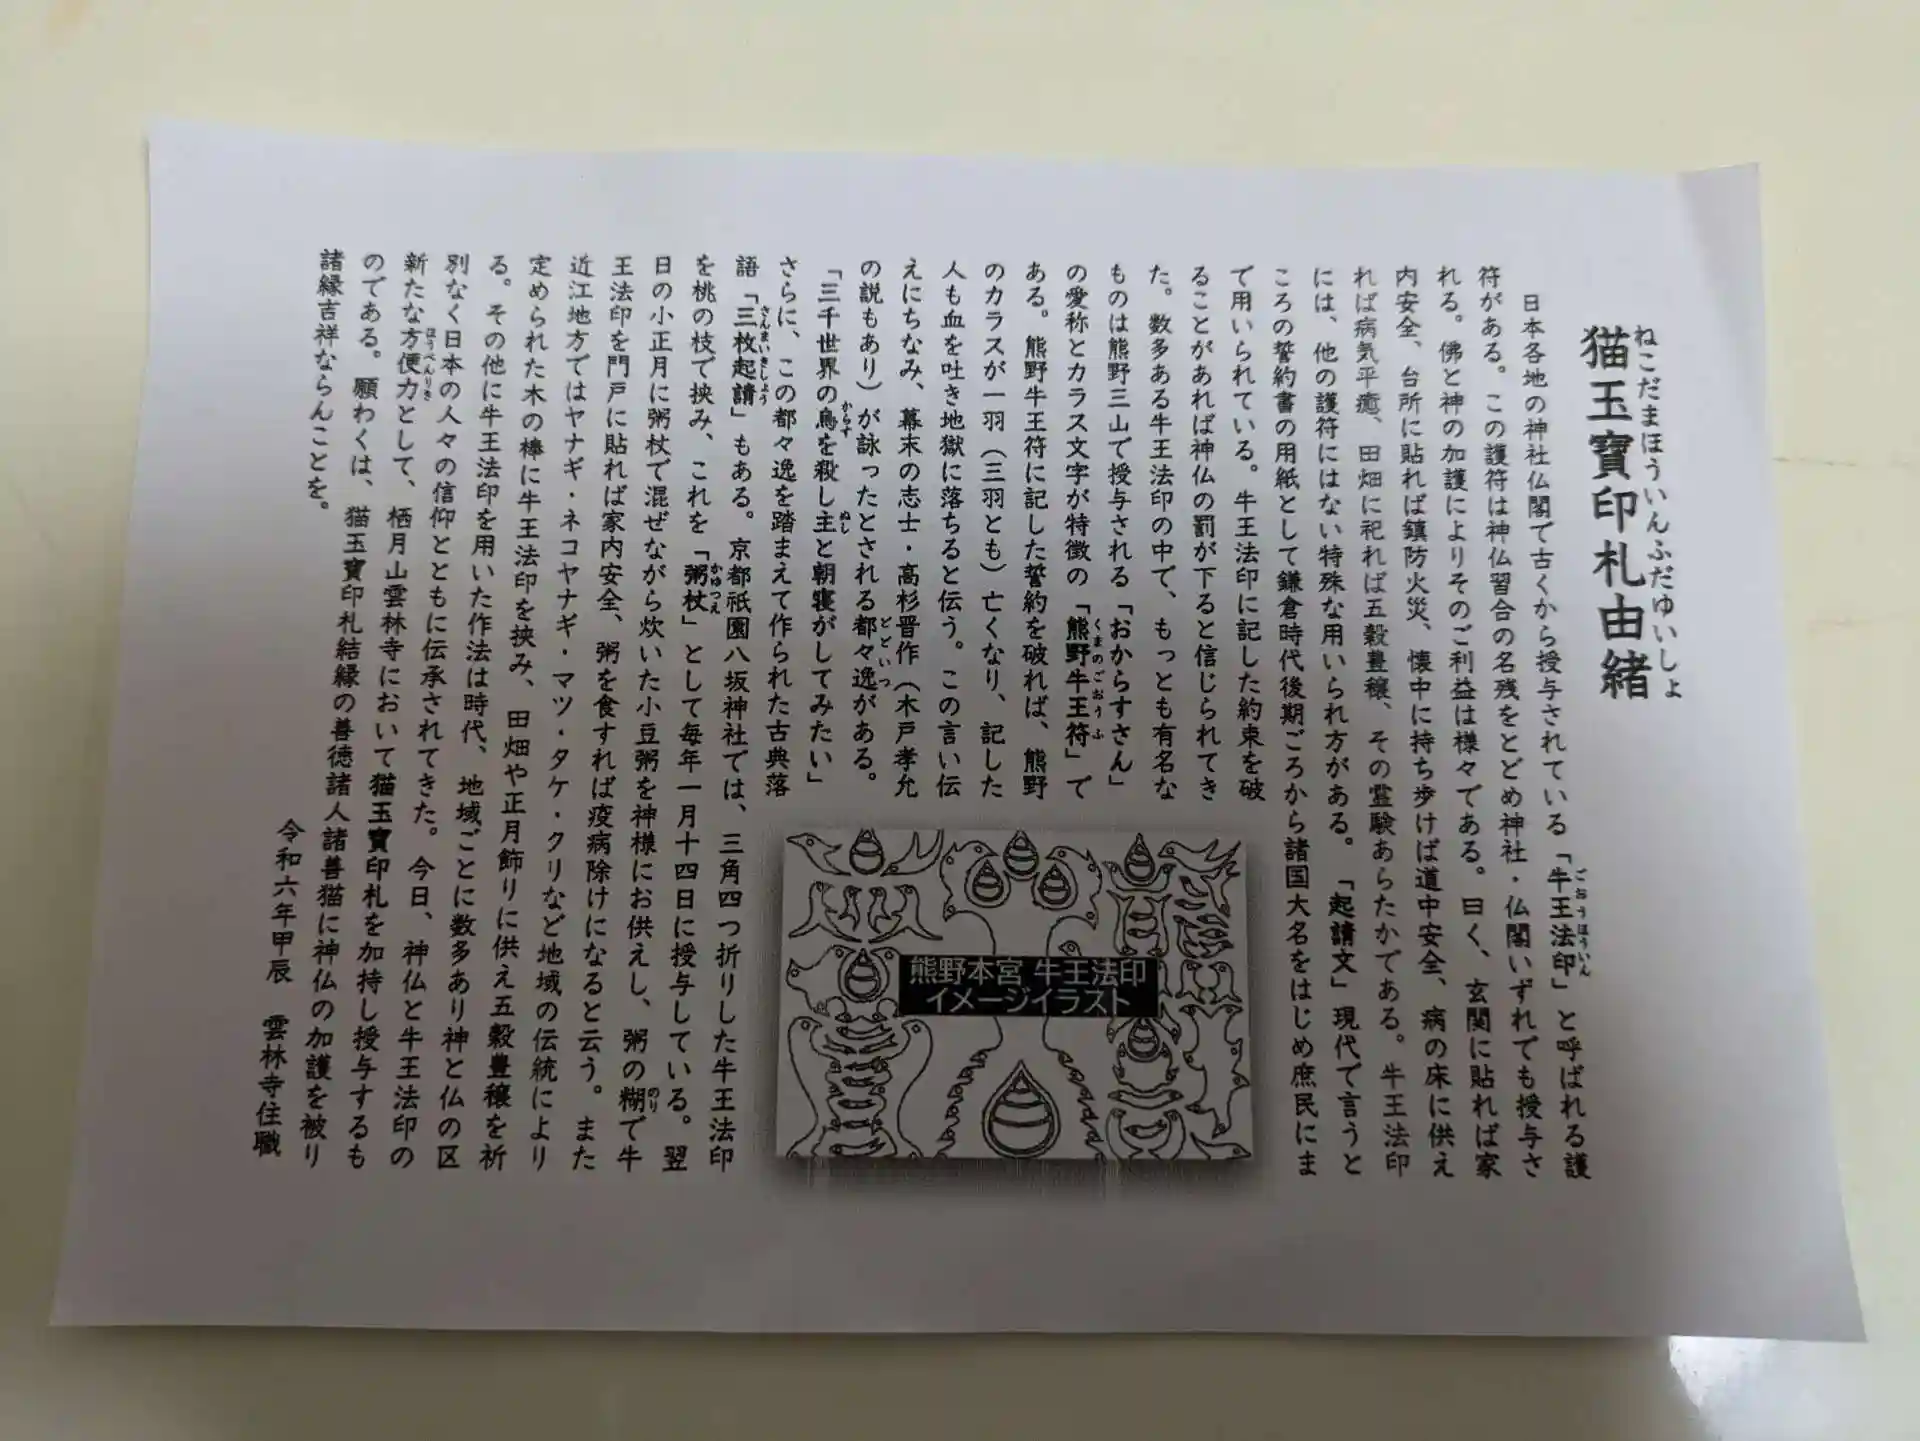 猫玉寶印札由緒
ねこだまほういんふだゆいしょ
日本各地の神社仏閣で古くから授与されている「牛王法印」と呼ばれる護
ごおうほういん
符がある。この護符は神仏習合の名残をとどめ神社・仏閣いずれでも授与さ
れる。佛と神の加護によりそのご利益は様々である。曰く、玄関に貼れば家
内安全、台所に貼れば鎮防火災、懐中に持ち歩けば道中安全、病の床に供え
れば病気平癒、田畑に祀れば五穀豊穣、その霊験あらたかである。牛王法印
には、他の護符にはない特殊な用いられ方がある。「起請文」現代で言うと
ころの誓約書の用紙として鎌倉時代後期ごろから諸国大名をはじめ庶民にま
で用いられている。牛王法印に記した約束を破
ることがあれば神仏の罰が下ると信じられてき
た。数多ある牛王法印の中で、もっとも有名な
ものは熊野三山で授与される「おからすさん」
の愛称とカラス文字が特徴の「熊野牛王符」で
くまのごおうふ
ある。熊野牛王符に記した誓約を破れば、熊野
のカラスが一羽（三羽とも）亡くなり、記した
人も血を吐き地獄に落ちると伝う。この言い伝
えにちなみ、幕末の志士・高杉晋作（木戸孝允
の説もあり）が詠ったとされる都々逸がある。
どどいつ
「三千世界の烏を殺し主と朝寝がしてみたい」
からす
ぬし
さらに、この都々逸を踏まえて作られた古典落
語「三枚起請」もある。京都祇園八坂神社では、三角四つ折りした牛王法印
さんまいきしょう
を桃の枝で挟み、これを「粥杖」として毎年一月十四日に授与している。翌
かゆつえ
日の小正月に粥杖で混ぜながら炊いた小豆粥を神様にお供えし、粥の糊で牛
のり
王法印を門戸に貼れば家内安全、粥を食すれば疫病除けになると云う。また
近江地方ではヤナギ・ネコヤナギ・マツ・タケ・クリなど地域の伝統により
定められた木の棒に牛王法印を挟み、田畑や正月飾りに供え五穀豊穣を祈
る。その他に牛王法印を用いた作法は時代、地域ごとに数多あり神と仏の区
別なく日本の人々の信仰とともに伝承されてきた。今日、神仏と牛王法印の
新たな方便力として、栖月山雲林寺において猫玉寶印札を加持し授与するも
ほうべんりき
のである。願わくは、猫玉寶印札結縁の善徳諸人諸善猫に神仏の加護を被り
諸縁吉祥ならんことを。
令和六年甲辰 雲林寺住職
熊野本宮 牛王法印
イメージイラスト